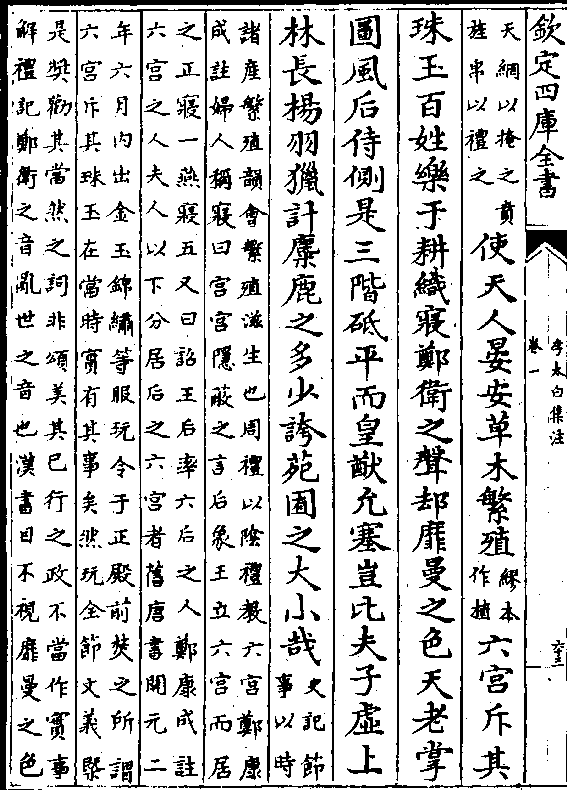 欽定四庫全書
李太白集注
卷一
天網以掩之賁
旌帛以禮之
使天人晏安草木繁殖
繆本
作植
六宮斥其
珠玉百姓樂于耕織寢鄭衛之聲却靡曼之色天老掌
圖風后侍側是三階砥平而皇猷允塞豈比夫子虛上
林長楊羽獵計麋鹿之多少誇苑囿之大小哉
史記節
事以時
諸產繁殖韻會繁殖滋生也周禮以陰禮教六宮鄭康
成註婦人稱寢曰宮宮隱蔽之言后象王立六宮而居
之正寢一燕寢五又曰詔王后率六后之人鄭康成註
六宮之人夫人以下分居后之六宮者舊唐書開元二
年六月內出金玉錦繡等服玩令于正殿前焚之所謂
六宮斥其珠玉在當時實有其事矣然玩全節文義槩
是奬勸其當然之詞非頌美其已行之政不當作實事
解禮記鄭衛之音亂世之音也漢書目不視靡曼之色